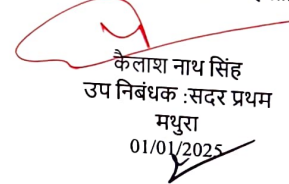 कैलाश नाथ सिंह
उप निबंधक :सदर प्रथम
मथुरा
01/01/2025